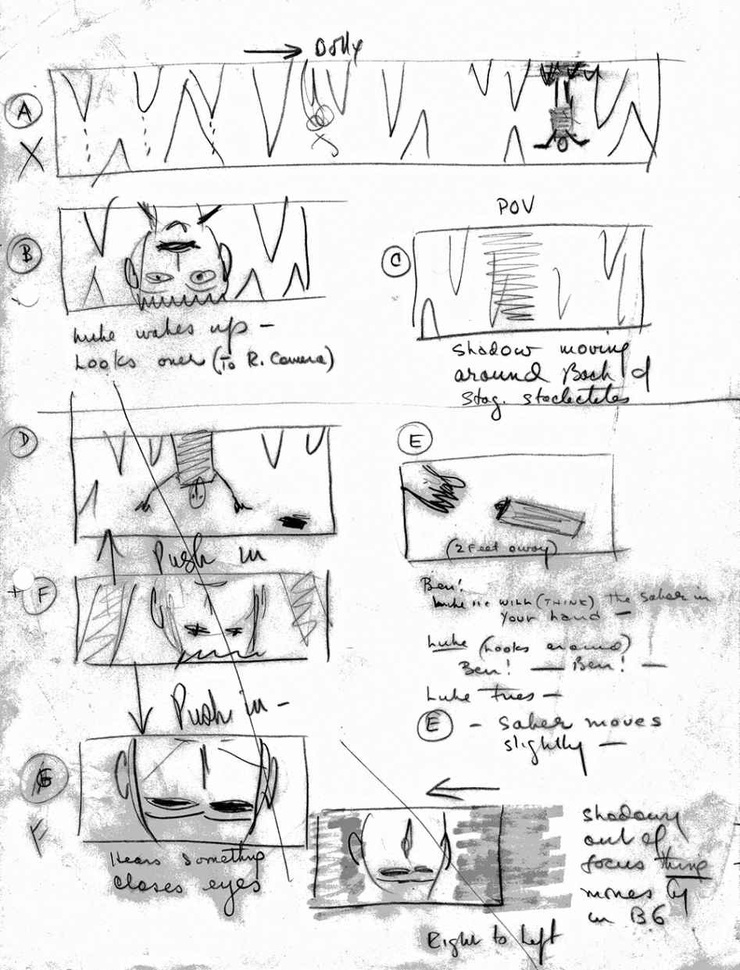 → Dolly
A
X
B
Luke wakes up –
Looks over (To R. Camera)
POV
C
Shadow moving
around Back of
Stag. stalactites
D
Push in
E
(2 Feet away)
Ben!
Luke will (THINK) the Saber in
your hand –
Luke (Looks around)
Ben! — Ben! –
Luke tries –
E – Saber moves
slightly –
+ F
Push in –
G
F
Hears Something
closes eyes
Shadowy
out of
focus thing
moves by
in BG
Right to Left